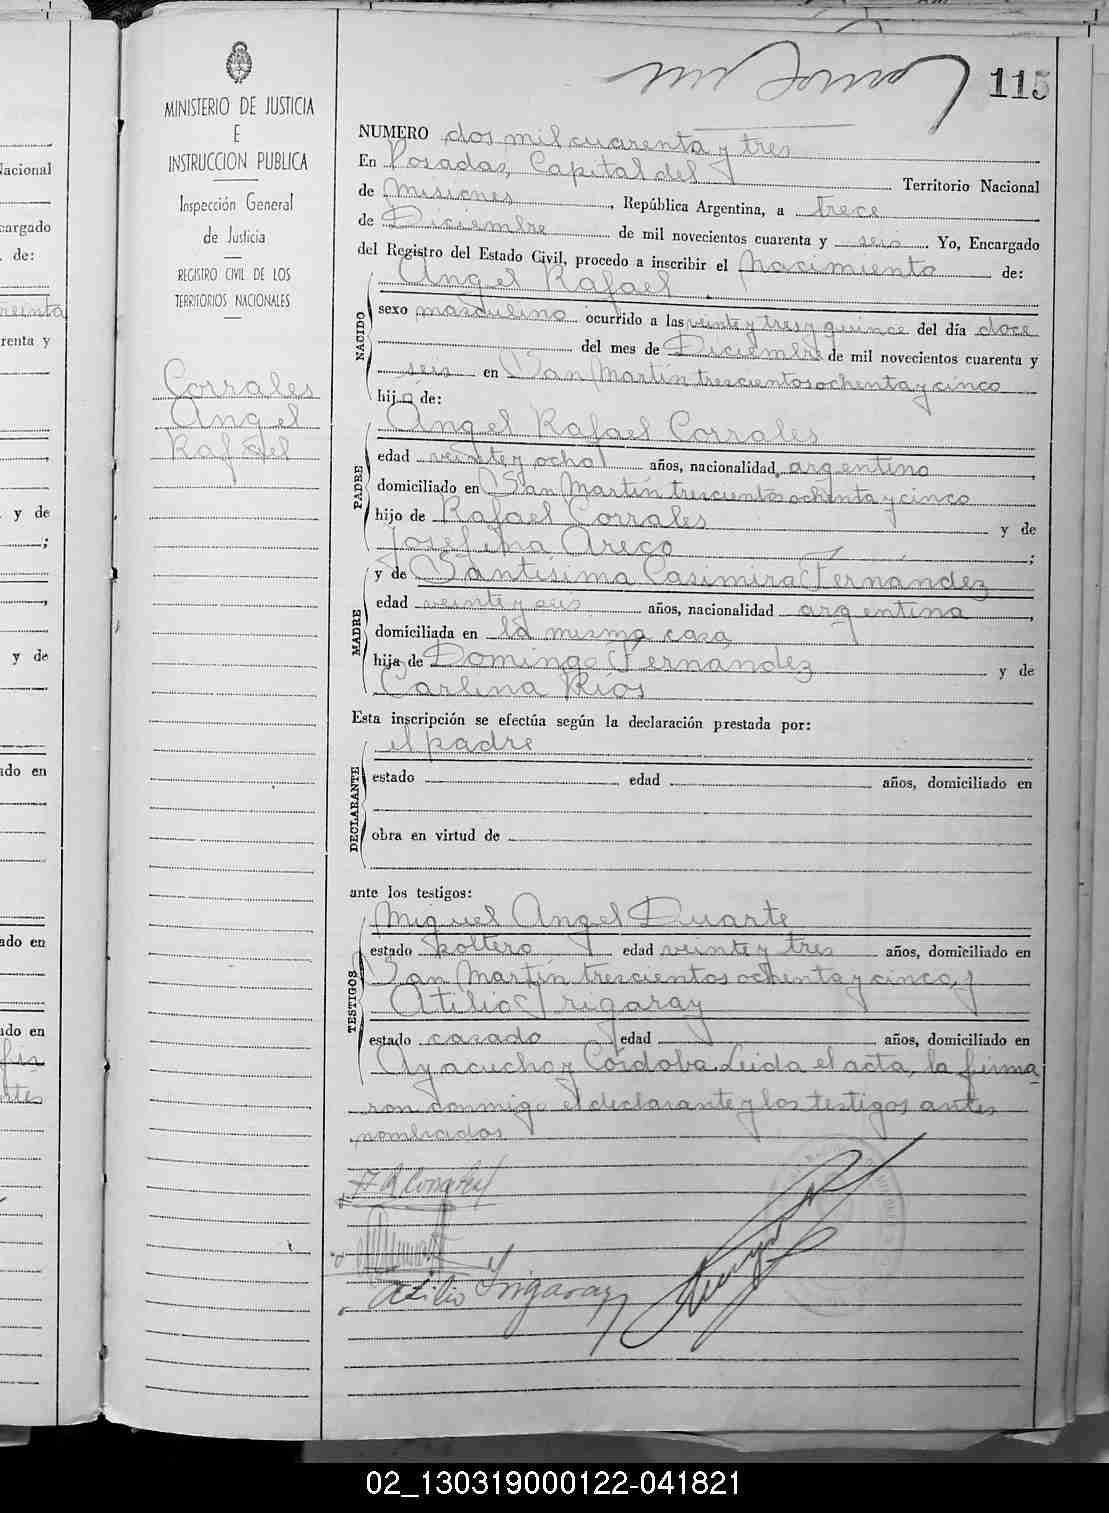 115
MINISTERIO DE JUSTICIA
E
INSTRUCCION PUBLICA
Inspección General
de Justicia
REGISTRO CIVIL DE LOS
TERRITORIOS NACIONALES
Corrales
Angel
Rafael
NUMERO dos mil cuarenta y tres
En Posadas, Capital del Territorio Nacional
de Misiones, República Argentina, a trece
de Diciembre de mil novecientos cuarenta y seis. Yo, Encargado
del Registro del Estado Civil, procedo a inscribir el Nacimiento de:
Angel Rafael
NACIDO
sexo masculino ocurrido a las veinte y tres y quince del día doce
del mes de Diciembre de mil novecientos cuarenta y
seis en San Martín trescientos ochenta y cinco
hijo de:
Angel Rafael Corrales
PADRE
edad veinte y ocho años, nacionalidad argentino
domiciliado en San Martín trescientos ochenta y cinco
hijo de Rafael Corrales y de
Josefina Areco;
y de Santísima Casimira Fernández
MADRE
edad veinte y seis años, nacionalidad argentina,
domiciliada en la misma casa,
hija de Domingo Fernández y de
Carlina Ríos
Esta inscripción se efectúa según la declaración prestada por:
el padre
DECLARANTE
estado edad años, domiciliado en
obra en virtud de
ante los testigos:
Miguel Angel Duarte
TESTIGOS
estado soltero edad veinte y tres años, domiciliado en
San Martín trescientos ochenta y cinco, y
Atilio Irigaray
estado casado edad años, domiciliado en
Ayacucho y Córdoba. Leida el acta, la firma
ron conmigo el declarante y los testigos antes
nombrados
A R Corrales
Atilio Irigaray
Nacional
cargado
de:
renta y
y de
y de
ado en
ado en
ado en
02_130319000122-041821